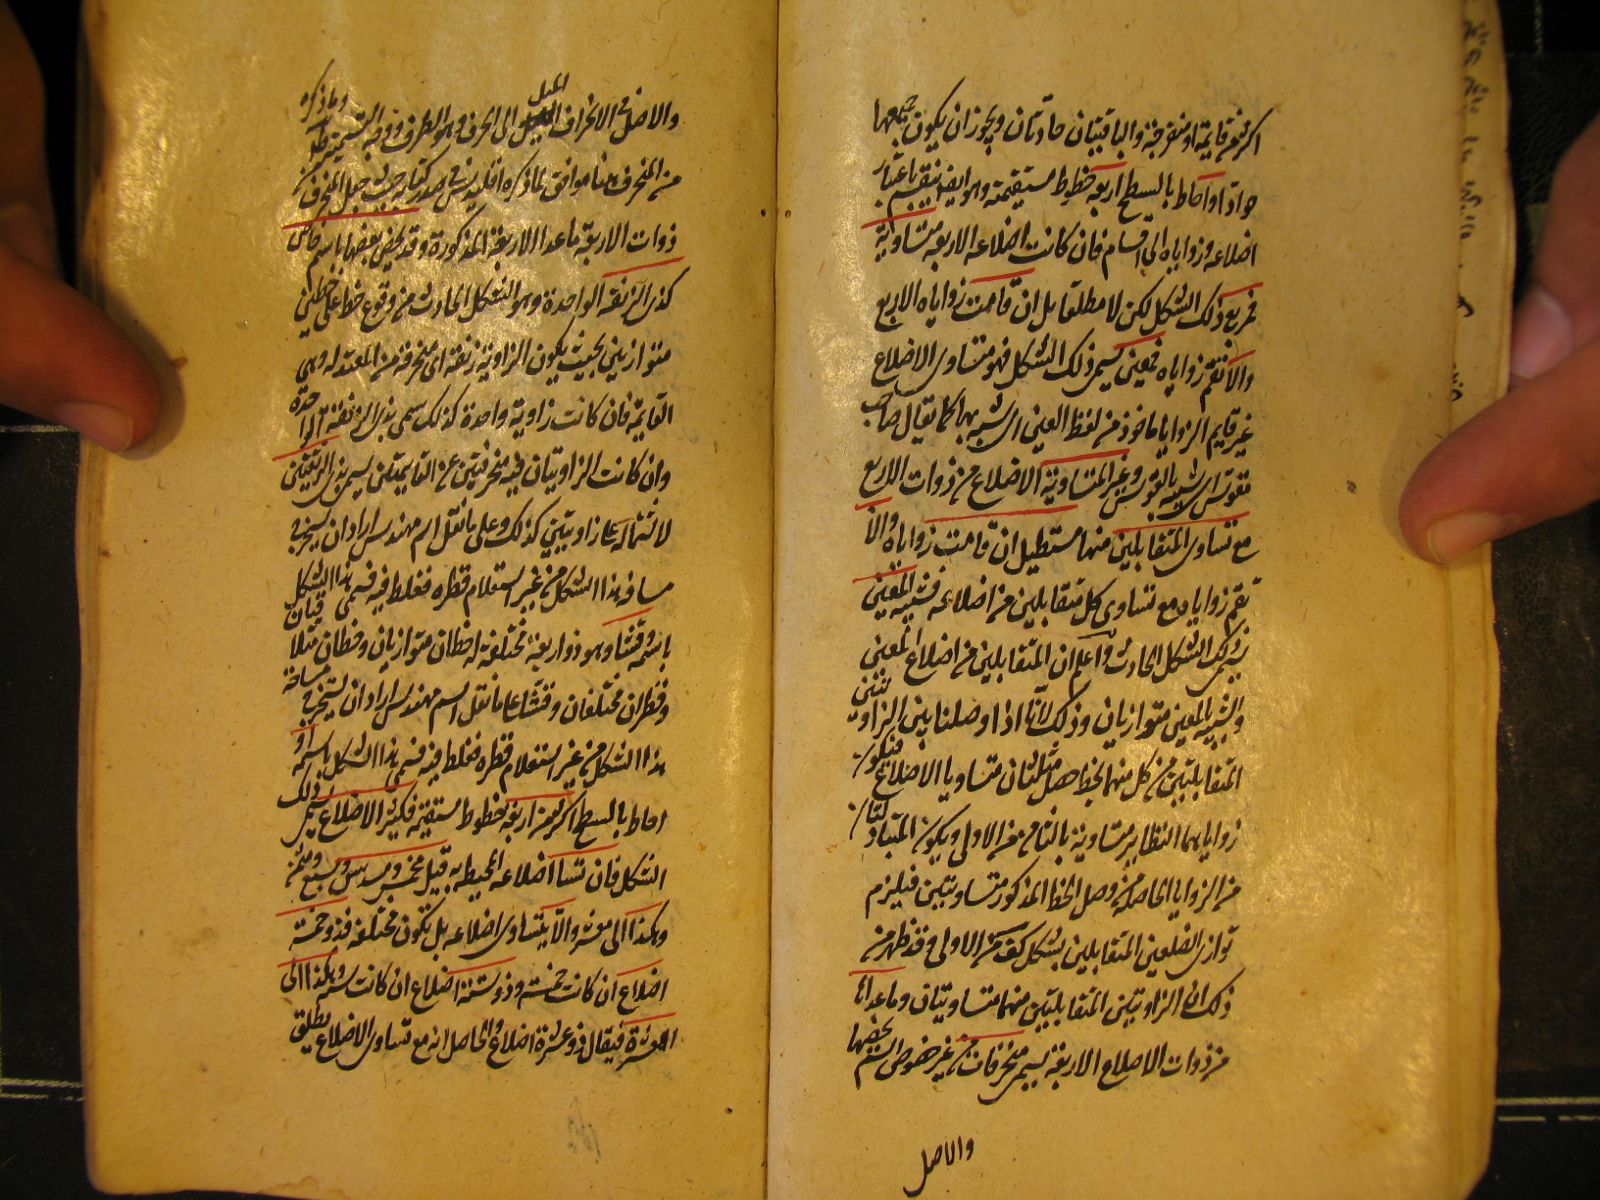 اكثر من قايمة او منفرجة والباقيتان حادتان ويجوز ان يكون جميعها
حواد او احاط بالسطح اربعة خطوط مستقيمة وهو ايضا ينقسم باعتبار
اضلاعه وزواياه الى اقسام فان كانت اضلاعه الاربعة متساوية
فمربع ذلك الشكل لكن لا مطلقا بل ان قامت زواياه الاربع
والا تقم زواياه فمعين يسمى ذلك الشكل فهو متساوى الاضلاع
غير قايم الزوايا ماخوذ من لفظ العين اى شبيه بها كما يقال حاجب
مقوس اى شبيه بالقوس وغير المتساوية الاضلاع من ذوات الاربع
مع تساوى المتقابلين منها مستطيل ان قامت زواياه والا
تقم زواياه مع تساوى كل متقابلين من اضلاعه فشبيه المعين
ذلك الشكل الحادث واعلم ان المتقابلين من اضلاع المعين
والشبيه بالمعين متوازيان وذلك لانا اذا وصلنا بين الزاويتين
المتقابلتين من كل منهما بخط حصل مثلثان متساويا الاضلاع فيكون
زواياهما النظاير متساوية بالثامن من الاولى ويكون المتبادلتان
من الزوايا الحاصلة من وصل الخط المذكور متساويتين فيلزم
توازى الضلعين المتقابلين بشكل كز من الاولى وقد ظهر من
ذلك ان الزاويتين المتقابلتين منهما متساويتان وما عداها
من ذوات الاضلاع الاربعة يسمى منحرفات من غير خصوص اسم ببعضها
والاصل
والاصل فى الانحراف الميل الى الحرف وهو الطرف ووجه التسمية ظاهر وما ذكره
من المنحرف هنا موافق لما ذكره اقليدس فى صدر كتابه حيث جعل المنحرف من
ذوات الاربعة ما عدا الاربعة المذكورة وقد يخص بعضها باسم خاص
كذى الزنقة الواحدة وهو الشكل الحادث من وقوع خط على خطين
متوازيين بحيث يكون الزاوية زنقة اى منحرفة من المعتدلة وهى
القايمة فان كانت زاوية واحدة كذلك سمى بذى الزنقة الواحدة
وان كانت الزاويتان فيه منحرفتين عن القايمتين يسمى بذى الزنقتين
لاشتماله على زاويتين كذلك وعلى ما نقل اسم مهندس اراد ان يستخرج
مسافة هذا الشكل من غير استعلام قطره فغلط فيه فسمى هذا الشكل
باسمه وقثا وهو ذو اربعة مختلفة له خطان متوازيان وخطان متلاقيان
وقطران مختلفان وقثا على ما نقل اسم مهندس اراد ان يستخرج مساحة
هذا الشكل من غير استعلام قطره فغلط فيه فسمى هذا الشكل باسمه او
احاط بالسطح اكثر من اربعة خطوط مستقيمة فكثير الاضلاع ذلك
الشكل فان تساوى اضلاعه المحيطة به قيل مخمس ومسدس ومسبع ومثمن
وهكذا الى معشر والا يتساوى اضلاعه بل تكون مختلفة فذو خمسة
اضلاع ان كانت خمسة وذو ستة اضلاع ان كانت ستة وهكذا الى
العشرة فيقال ذو عشرة اضلاع والحاصل انه مع تساوى الاضلاع يطلق